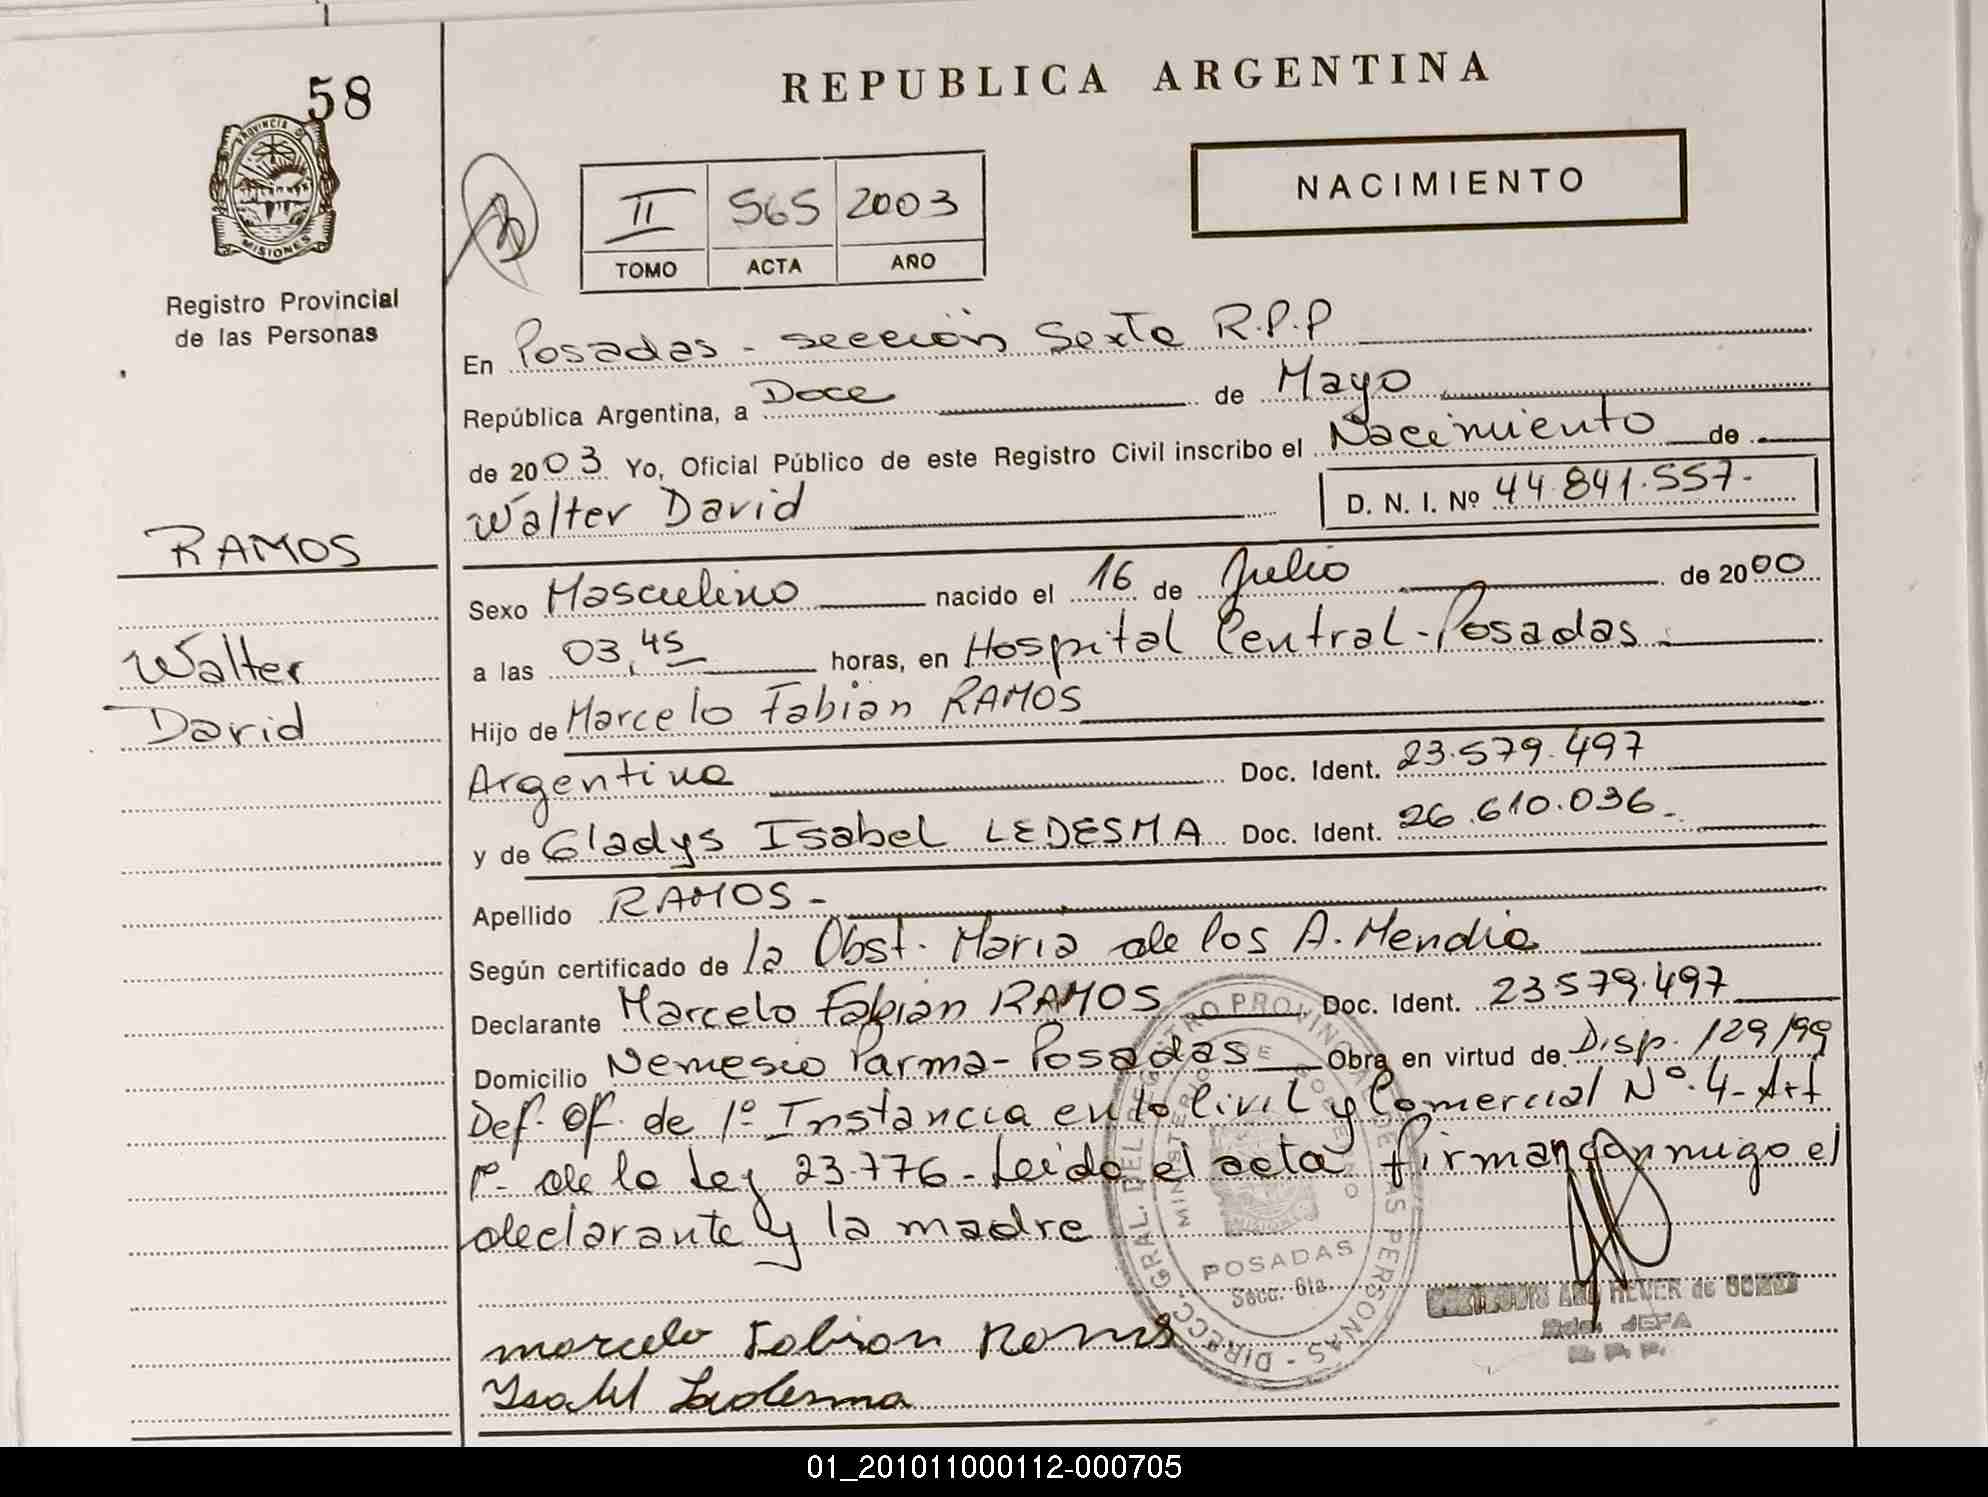 58
PROVINCIA DE
MISIONES
Registro Provincial
de las Personas
RAMOS
Walter
David
REPUBLICA ARGENTINA
NACIMIENTO
II 565 2003
TOMO ACTA AÑO
En Posadas - sección Sexta R.P.P
República Argentina, a Doce de Mayo
de 2003 Yo, Oficial Público de este Registro Civil inscribo el Nacimiento de
Walter David D. N. I. Nº 44.841.557.-
Sexo Masculino nacido el 16 de Julio de 2000
a las 03,45 horas, en Hospital Central - Posadas.
Hijo de Marcelo Fabian RAMOS
Argentina Doc. Ident. 23.579.497
y de Gladys Isabel LEDESMA Doc. Ident. 26.610.036.-
Apellido RAMOS -
Según certificado de la Obst. Maria de los A. Mendia
Declarante Marcelo Fabian RAMOS Doc. Ident. 23579.497
Domicilio Nemesio Parma - Posadas Obra en virtud de Disp. 129/99
Def. Of. de 1º Instancia en lo Civil y Comercial Nº. 4 - Art
1º- de la Ley 23.776 - Leida el acta firman conmigo el
declarante y la madre
marcelo Fabian Ramos
Ysabel Ledesma
DIRECC. GRAL. DEL REGISTRO PROVINCIAL DE LAS PERSONAS -
MINISTERIO DE GOBIERNO
MISIONES
POSADAS
Secc. 6ta.
JEFA
R. P. P.
01_201011000112-000705